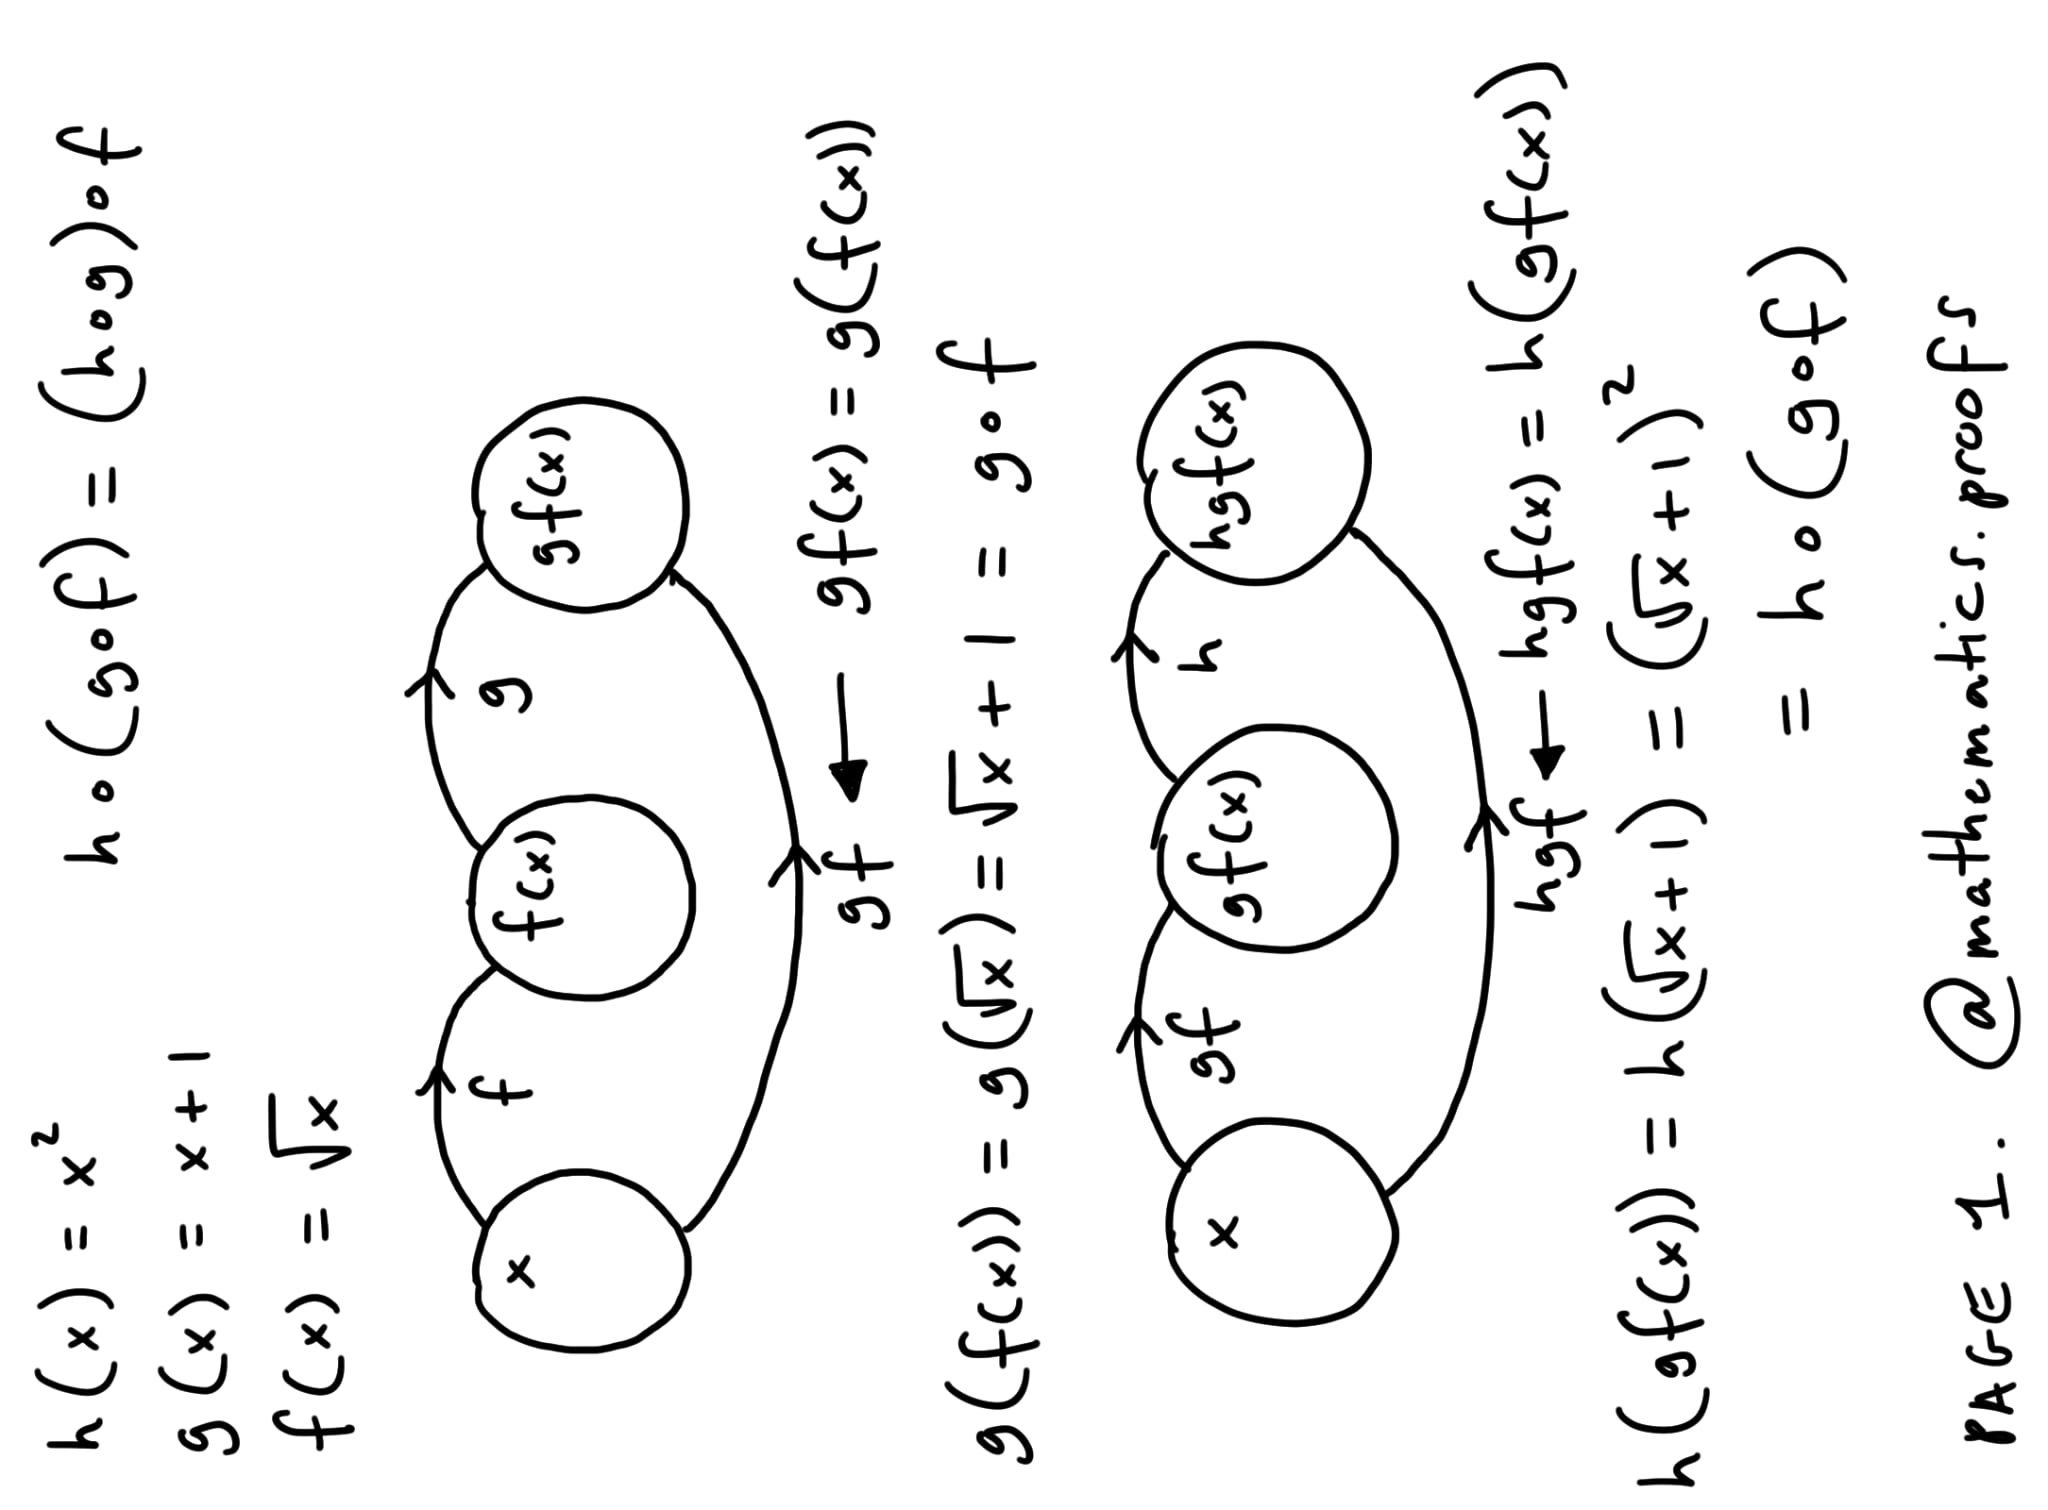 h(x) = x²
h∘(g∘f) = (h∘g)∘f
g(x) = x+1
f(x) = √x
f
g
x
f(x)
gf(x)
gf ← gf(x) = g(f(x))
g(f(x)) = g(√x) = √x + 1 = g∘f
gf
h
x
gf(x)
hgf(x)
hgf ← hgf(x) = h(gf(x))
h(gf(x)) = h(√x+1) = (√x+1)²
= h∘(g∘f)
PAGE 1. @mathematics.proofs